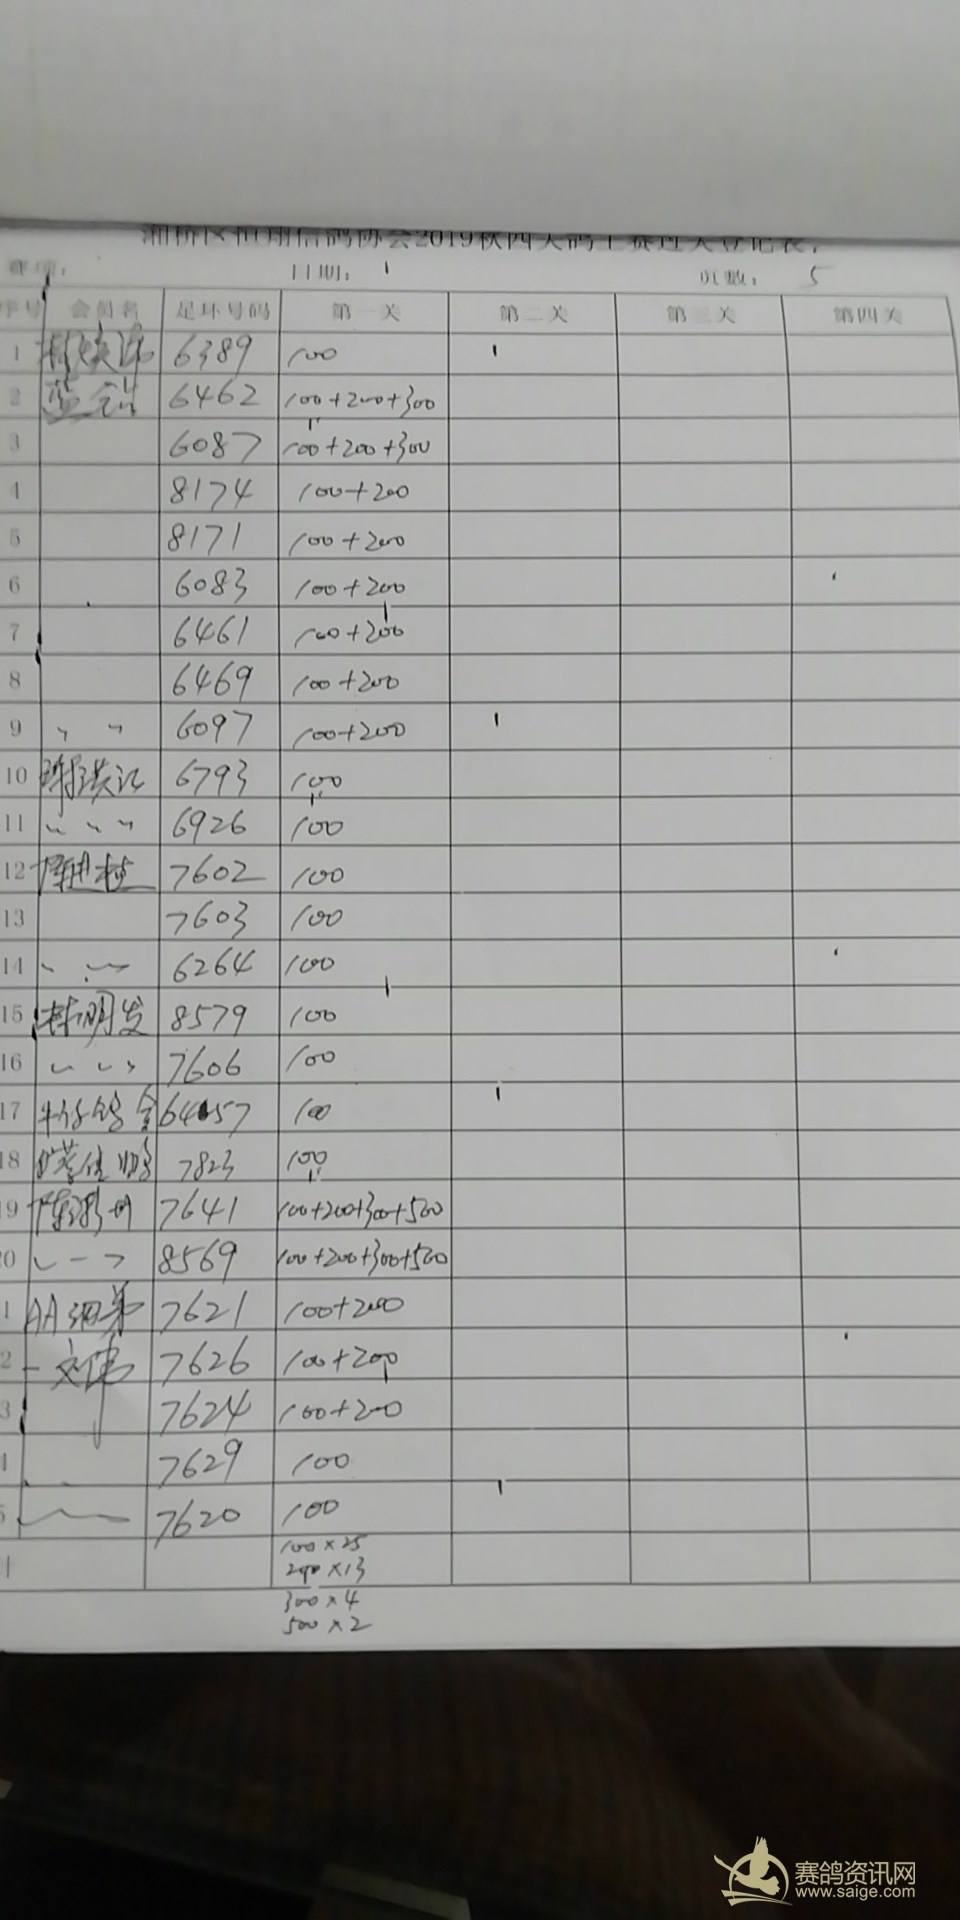 湘桥区恒翔信鸽协会2019秋四关鸽王赛过关登记表
赛项： 日期： 页数： 5
序号 会员名 足环号码 第一关 第二关 第三关 第四关
1 6389 100
2 蓝 6462 100+200+300
3 6087 100+200+300
4 8174 100+200
5 8171 100+200
6 6083 100+200
7 6461 100+200
8 6469 100+200
9 〃 〃 6097 100+200
10 谢洪江 6793 100
11 〃 〃 〃 6926 100
12 7602 100
13 7603 100
14 〃 〃 6264 100
15 林明发 8579 100
16 〃 〃 〃 7606 100
17 牛仔鸽舍 100
18 7823 100
19 7641 100+200+300+500
20 8569 100+200+300+500
1 AA 7621 100+200
2 一文伟 7626 100+200
3 7624 100+200
7629 100
7620 100
100×25
200×13
300×4
500×2
赛鸽资讯网
www.saige.com